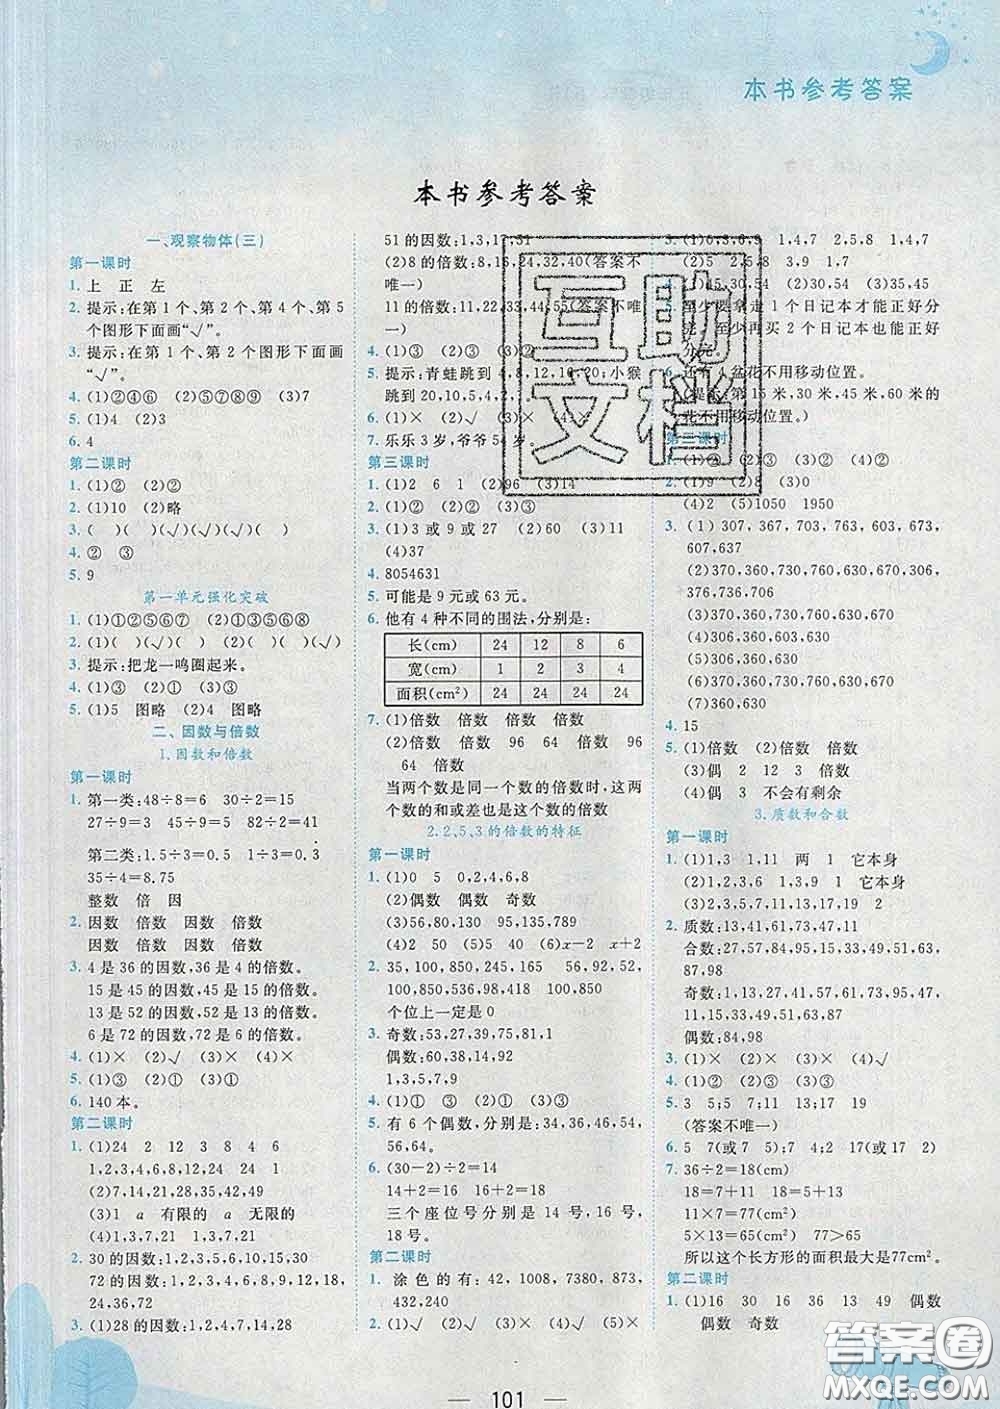 本书参考答案
本书参考答案
一、观察物体(三)
第一课时
1. 上 正 左
2. 提示:在第1个、第2个、第4个、第5
个图形下面画“√”。
3. 提示:在第1个、第2个图形下面画
“√”。
4. (1)②④⑥ (2)①⑦⑧⑨ (3)7
5. (1)4 (2)3
6. 4
第二课时
1. (1)② (2)②
2. (1)10 (2)略
3. ( )( )(√)(√)(√)
4. ② ③
5. 9
第一单元强化突破
1. (1)①②⑤⑥⑦ (2)③④⑧
2. (1)( )( )(√) (2)( )(√)( )
3. 提示:把龙一鸣圈起来。
4. (1)③ (2)① (3)④
5. (1)5 图略 (2)4 图略
二、因数与倍数
1.因数和倍数
第一课时
1. 第一类:48÷8=6 30÷2=15
27÷9=3 45÷9=5 56÷7=8
280÷2=140
第二类:1.5÷3=0.5 1÷3=0.3̇
35÷4=8.75
整数 倍 因
2. 因数 倍数 因数 倍数
因数 倍数 因数 倍数
3. 4是36的因数,36是4的倍数。
15是45的因数,45是15的倍数。
13是52的因数,52是13的倍数。
6是72的因数,72是6的倍数。
4. (1)× (2)√ (3)× (4)√
5. (1)③ (2)② (3)①
6. 140本。
第二课时
1. (1)24 2 12 3 8 4 6
1,2,3,4,6,8,12,24 1 24
(2)7,14,21,28,35,42,49
(3)1 a 有限的 a 无限的
(4)1,3,7,21 7,21
2. 30的因数:1,2,3,5,6,10,15,30
72的因数:1,2,3,4,6,8,9,12,18,
24,36,72
3. (1)28的因数:1,2,4,7,14,28
51的因数:1,3,17,51
(2)8的倍数:8,16,24,32(答案不
唯一)
11的倍数:11,22,33,44,55(答案不唯
一)
4. (1)③ (2)③ (3)①
5. 提示:青蛙跳到4,8,12,16,20;小猴
跳到20,10,5,4,2,1。
6. (1)× (2)√ (3)×
7. 乐乐3岁,爷爷54岁。
第三课时
1. (1)2 6 1 (2)96 (3)14
2. (1)√ (2)× (3)× (4)× (5)×
3. (1)3或9或27 (2)60 (3)11
(4)37
4. 8054631
5. 可能是9元或63元。
6. 他有4种不同的围法,分别是:
长(cm) 24 12 8 6
宽(cm) 1 2 3 4
面积(cm²) 24 24 24 24
7. (1)倍数 倍数 倍数 倍数
(2)倍数 倍数 96 64 倍数 96
64 倍数
当两个数是同一个数的倍数时,这两
个数的和或差也是这个数的倍数
2.2、5、3的倍数的特征
第一课时
1. (1)0 5 0,2,4,6,8
(2)偶数 偶数 奇数
(3)56,80,130 95,135,789
(4)2 50 (5)40 (6)x-2 x+2
2. 35,100,850,245,165 56,92,52,
100,850,38,94,536 100,850
个位上一定是0
3. 奇数:53,27,39,75,81,1
偶数:60,38,14,92
1,3,5,7,9
4. (1)② (2)③ (3)① (4)③
5. 有6个偶数,分别是:34,36,46,54,
56,64。
6. (30-2)÷2=14
14+2=16 16+2=18
三个座位号分别是14号、16号、
18号。
第二课时
1. 涂色的有:42,1008,7380,873,
432,240
2. (1)√ (2)√ (3)× (4)√ (5)×
3. (1)6,3,6,9 1,4,7 2,5,8 1,4,7
(2)5 2,5,8 3,9 1,7
4. (1)45,30,54 (2)30,54
至少要拿走1个日记本才能正好分
完。至少再买2个日记本才能正好
分完。
6. 还有4盆花不用移动位置。
(提示:第15米,30米,45米,60米的
花不用移动位置。)
第三课时
1. (1)④ (2)④ (3)② (4)②
2. (1)9 (2)8 (3)0
(4)2 (5)1050 1950
3. (1) 307,367,703,763,603,673,
607,637
(2)370,360,730,760,630,670,306,
376,736,706
(3)370,360,730,760,630,670
(4)603,630,306,360
(5)370,360,730,760,630,670
(6)630,306,360
(7)360,630
4. 15
5. (1)倍数 (2)倍数 倍数
(3)偶 2 12 3 倍数
(4)偶 3 不会有剩余
3.质数和合数
第一课时
1. (1)1,3 1,11 两 1 它本身
(2)1,3,9 1,2,5,10 1 它本身
(3)2,3,5,7,11,13,17,19 2
2. 质数:13,41,61,73,47,11
合数:27,57,84,95,15,33,49,51,63,
87,98
奇数:1,13,27,41,57,61,73,95,47,
11,15,33,49,51,63,87
偶数:84,98
3. (1)× (2)× (3)× (4)√
4. (1)② (2)③ (3)① (4)③
5. 3 5;5 7;11 13;17 19
(答案不唯一)
6. 5 7(或7 5);7 4;2 17(或17 2)
7. 36÷2=18(cm)
18=7+11 18=5+13
11×7=77(cm²)
5×13=65(cm²) 77>65
所以这个长方形的面积最大是77cm²。
第二课时
1. (1)16 30 16 36 13 49 偶数
偶数 奇数
101
互助
文档
答案圈
MXQE.COM